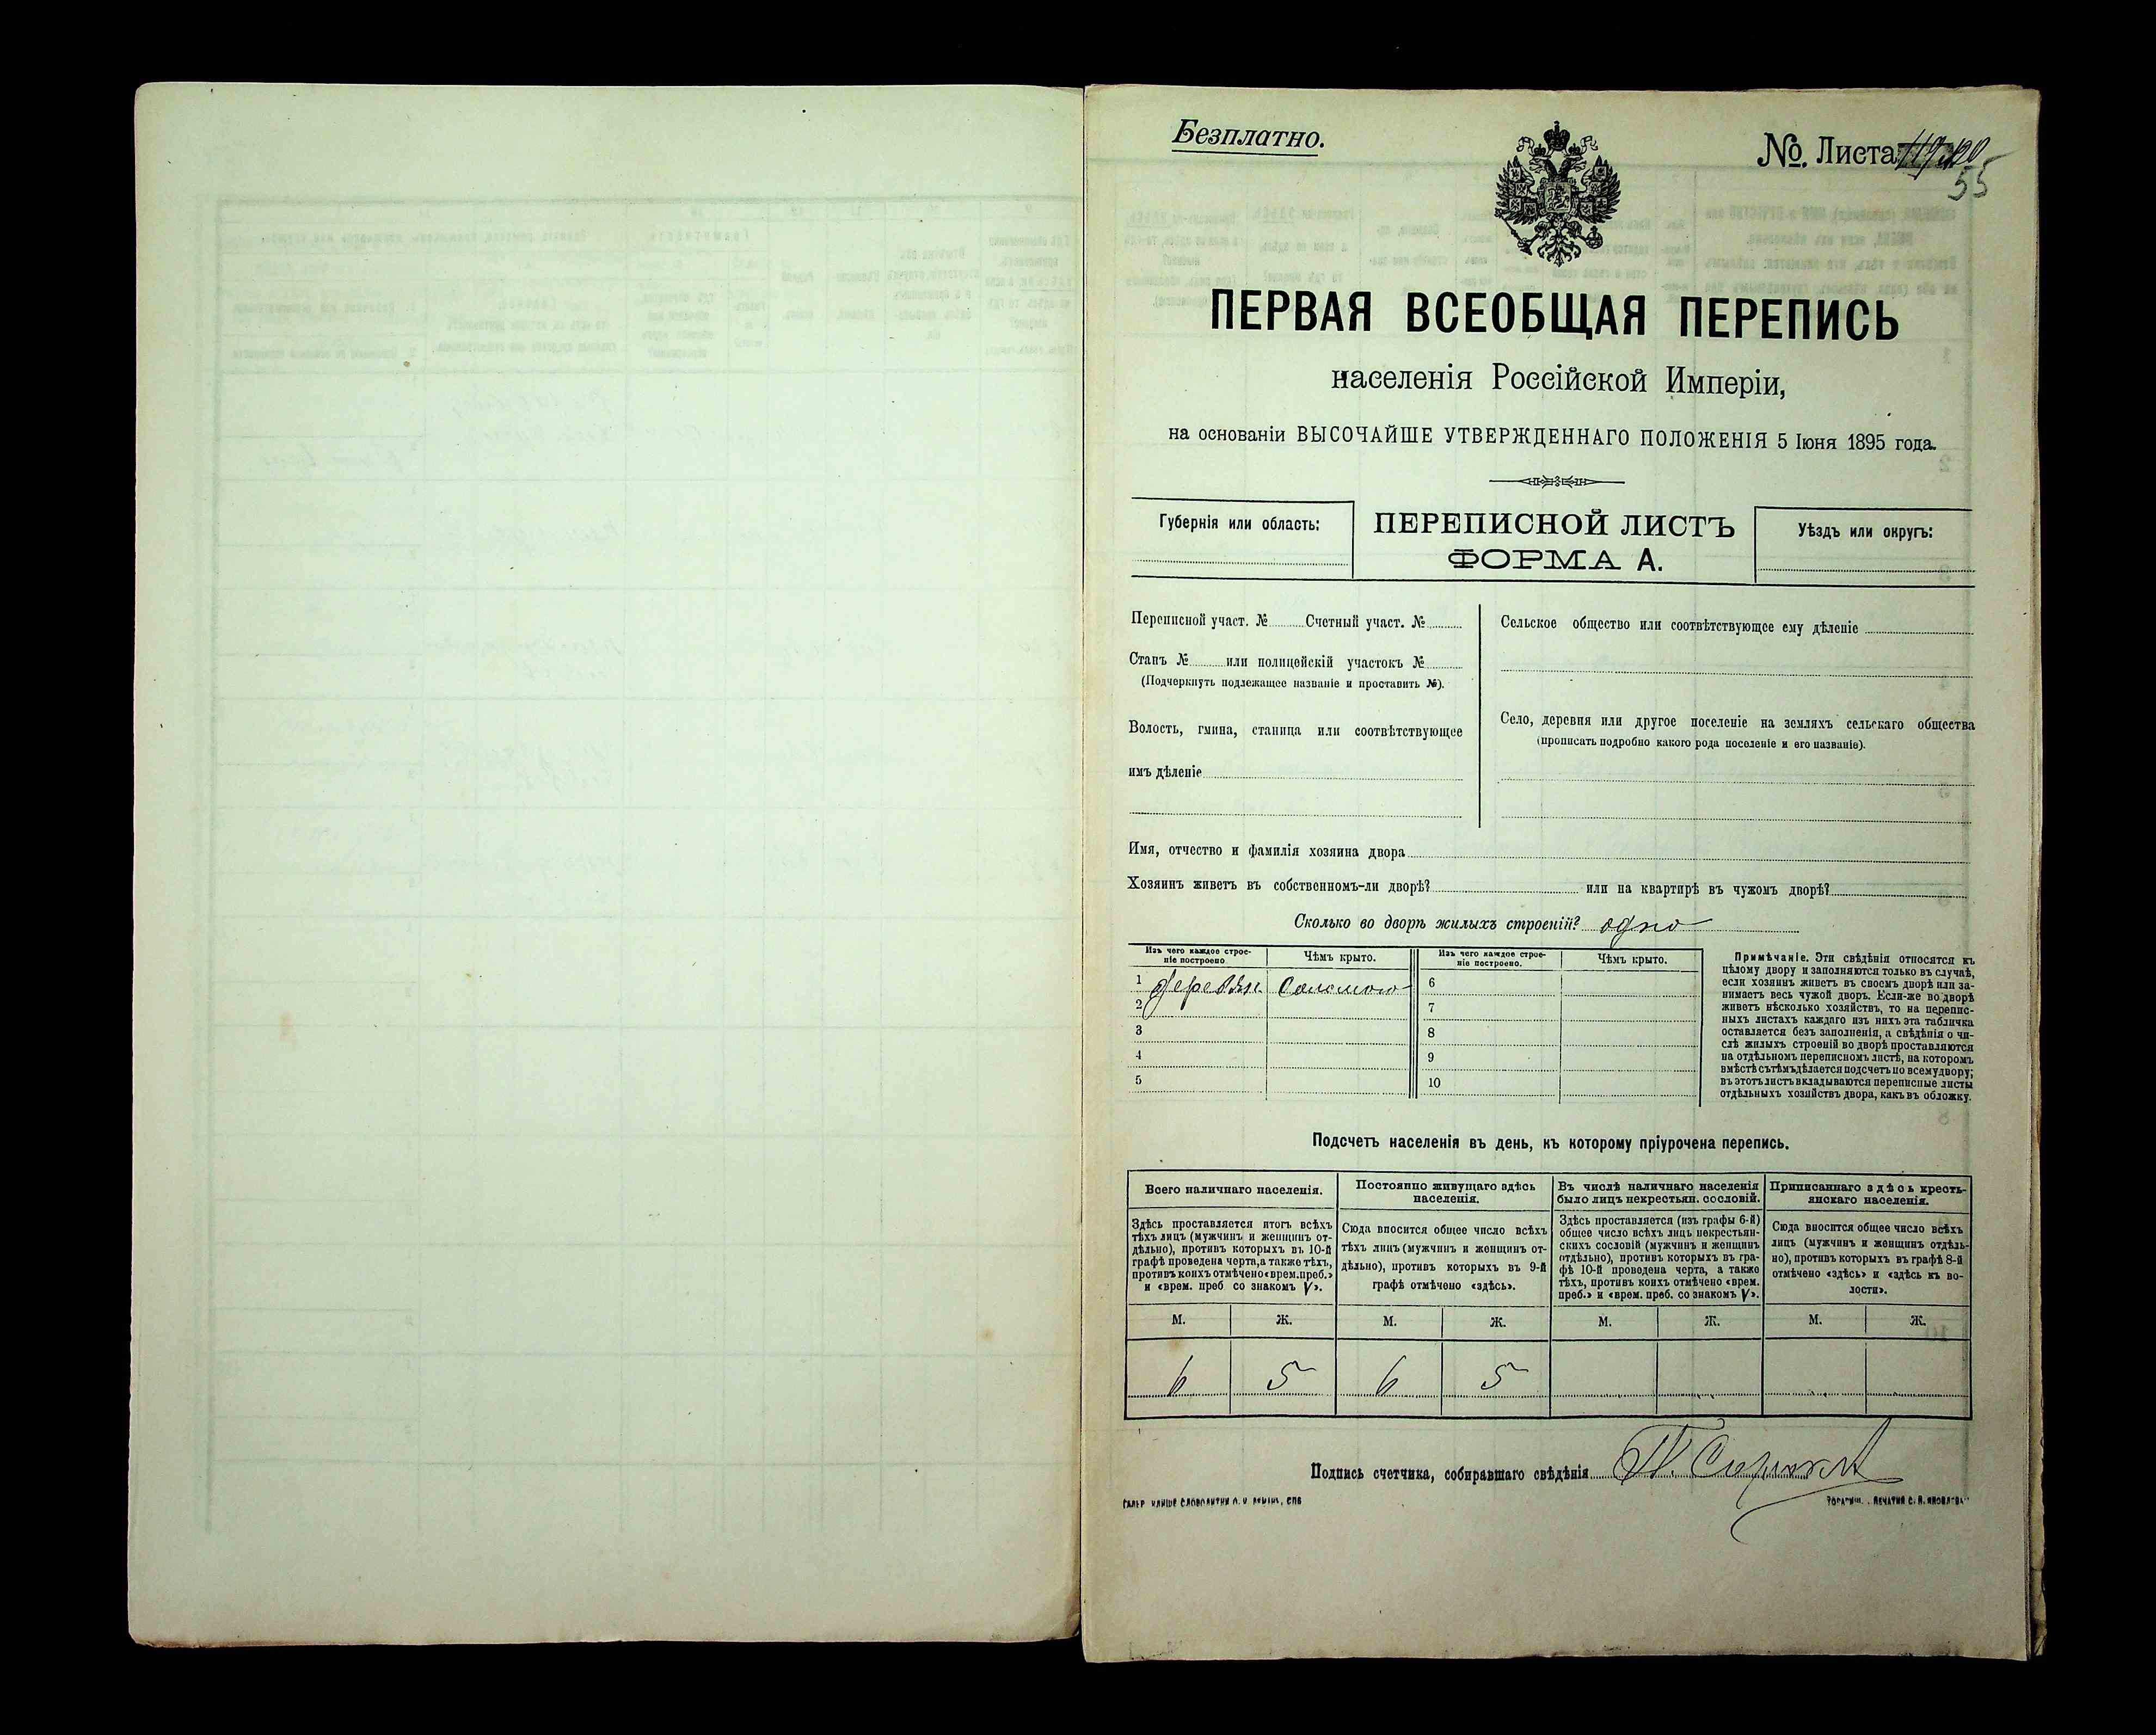 Безплатно.
№. Листа 119-120
55
ПЕРВАЯ ВСЕОБЩАЯ ПЕРЕПИСЬ
населенія Россійской Имперіи,
на основаніи ВЫСОЧАЙШЕ УТВЕРЖДЕННАГО ПОЛОЖЕНІЯ 5 Іюня 1895 года.
Губернія или область:
ПЕРЕПИСНОЙ ЛИСТЪ
ФОРМА А.
Уѣздъ или округъ:
Переписной участ. № Счетный участ. №
Станъ № или полицейскій участокъ №
(Подчеркнуть подлежащее названіе и проставить №).
Волость, гмина, станица или соотвѣтствующее
имъ дѣленіе
Сельское общество или соотвѣтствующее ему дѣленіе
Село, деревня или другое поселеніе на земляхъ сельскаго общества
(прописать подробно какого рода поселеніе и его названіе).
Имя, отчество и фамилія хозяина двора
Хозяинъ живетъ въ собственномъ-ли дворѣ? или на квартирѣ въ чужомъ дворѣ?
Сколько во дворѣ жилыхъ строеній? одно
Изъ чего каждое строе-
ніе построено
Чѣмъ крыто.
Изъ чего каждое строе-
ніе построено.
Чѣмъ крыто.
1 деревян. Соломою
2
3
4
5
6
7
8
9
10
Примѣчаніе. Эти свѣдѣнія относятся къ
цѣлому двору и заполняются только въ случаѣ,
если хозяинъ живетъ въ своемъ дворѣ или за-
нимаетъ весь чужой дворъ. Если-же во дворѣ
живетъ нѣсколько хозяйствъ, то на перепис-
ныхъ листахъ каждаго изъ нихъ эта табличка
оставляется безъ заполненія, а свѣдѣнія о чи-
слѣ жилыхъ строеній во дворѣ проставляются
на отдѣльномъ переписномъ листѣ, на которомъ
вмѣстѣ съ тѣмъ дѣлается подсчетъ по всему двору;
въ этотъ листъ вкладываются переписные листы
отдѣльныхъ хозяйствъ двора, какъ въ обложку.
Подсчетъ населенія въ день, къ которому пріурочена перепись.
Всего наличнаго населенія.
Здѣсь проставляется итогъ всѣхъ
тѣхъ лицъ (мужчинъ и женщинъ от-
дѣльно), противъ которыхъ въ 10-й
графѣ проведена черта, а также тѣхъ,
противъ коихъ отмѣчено «врем. преб.»
и «врем. преб со знакомъ V».
Постоянно живущаго здѣсь
населенія.
Сюда вносится общее число всѣхъ
тѣхъ лицъ (мужчинъ и женщинъ от-
дѣльно), противъ которыхъ въ 9-й
графѣ отмѣчено «здѣсь».
Въ числѣ наличнаго населенія
было лицъ некрестьян. сословій.
Здѣсь проставляется (изъ графы 6-й)
общее число всѣхъ лицъ некрестьян-
скихъ сословій (мужчинъ и женщинъ
отдѣльно), противъ которыхъ въ гра-
фѣ 10-й проведена черта, а также
тѣхъ, противъ коихъ отмѣчено «врем.
преб.» и «врем. преб. со знакомъ V».
Приписаннаго здѣсь кресть-
янскаго населенія.
Сюда вносится общее число всѣхъ
лицъ (мужчинъ и женщинъ отдѣль-
но), противъ которыхъ въ графѣ 8-й
отмѣчено «здѣсь» и «здѣсь къ во-
лости».
М. Ж. М. Ж. М. Ж. М. Ж.
6 5 6 5
Подпись счетчика, собиравшаго свѣдѣнія